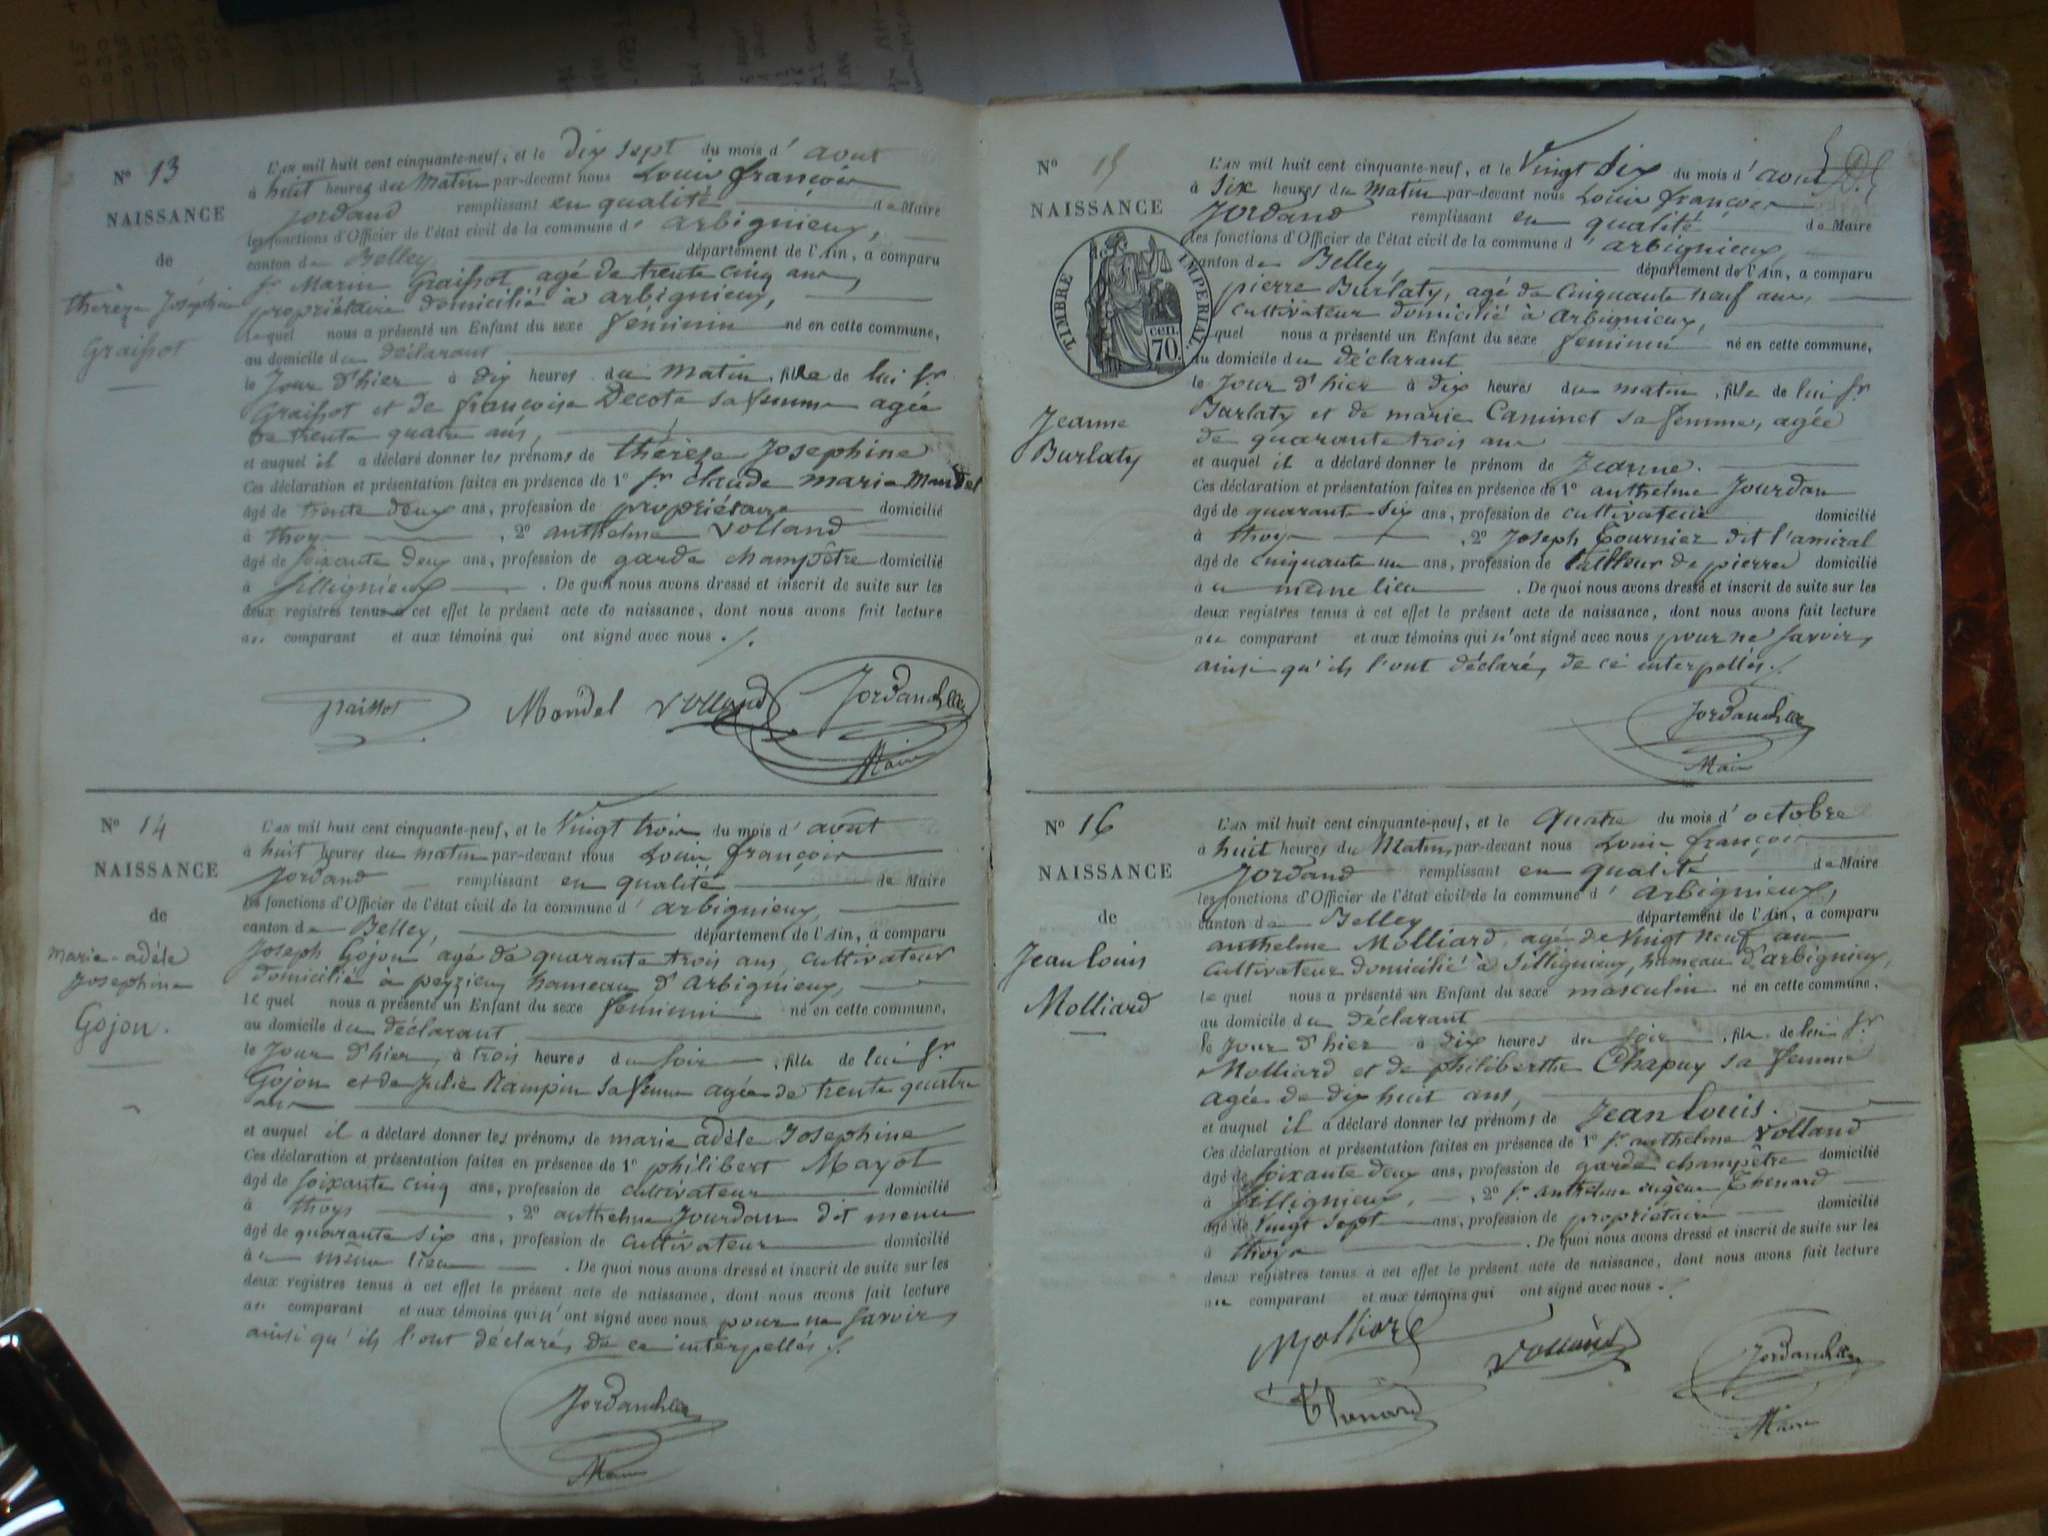 N° 13
NAISSANCE
de
thérèze Joséphine
Graissot
L'AN mil huit cent cinquante-neuf, et le dix sept du mois d'aout
à huit heures du Matin par-devant nous Louis françois
Jordand remplissant en qualité de Maire
les fonctions d'Officier de l'état civil de la commune d'arbignieux,
canton de Belley, département de l'Ain, a comparu
Sr Marin Graissot agé de trente cinq ans,
propriétaire domicilié à arbignieux,
lequel nous a présenté un Enfant du sexe féminin né en cette commune,
au domicile du déclarant
le Jour d'hier à dix heures du matin, fille de lui Sr
Graissot et de françoise Decote sa femme agée
de trente quatre ans,
et auquel il a déclaré donner les prénoms de thérèze Josephine
Ces déclaration et présentation faites en présence de 1° Sr claude marie Mandel
âgé de trente deux ans, profession de propriétaire domicilié
à thoys, 2° anthelme Volland
âgé de soixante deux ans, profession de garde champêtre domicilié
à Sillignieux. De quoi nous avons dressé et inscrit de suite sur les
deux registres tenus à cet effet le présent acte de naissance, dont nous avons fait lecture
au comparant et aux témoins qui ont signé avec nous ./.
graissot Mandel Volland Jordand
Maire
N° 14
NAISSANCE
de
marie-adéle
Josephine
Gojon.
L'AN mil huit cent cinquante-neuf, et le Vingt trois du mois d'août
à huit heures du matin par-devant nous Louis françois
Jordand remplissant en qualité de Maire
les fonctions d'Officier de l'état civil de la commune d'arbignieux,
canton de Belley, département de l'Ain, a comparu
Joseph Gojon agé de quarante trois ans, cultivateur
domicilié à peyzieu hameau d'arbignieux,
lequel nous a présenté un Enfant du sexe féminin né en cette commune,
au domicile du déclarant
le Jour d'hier, à trois heures du soir, fille de lui Sr
Gojon et de Julie Rampin sa femme agée de trente quatre
ans
et auquel il a déclaré donner les prénoms de marie adéle Josephine
Ces déclaration et présentation faites en présence de 1° philibert Mayot
âgé de soixante cinq ans, profession de cultivateur domicilié
à thoys, 2° anthelme Jourdan dit menu
âgé de quarante six ans, profession de cultivateur domicilié
à u même lieu. De quoi nous avons dressé et inscrit de suite sur les
deux registres tenus à cet effet le présent acte de naissance, dont nous avons fait lecture
au comparant et aux témoins qui n'ont signé avec nous pour ne savoir,
ainsi qu'ils l'ont déclaré, de ce interpellés ./.
Jordand
Maire
N° 15
NAISSANCE
TIMBRE IMPERIAL
cen.
70.
Jeanne
Burlaty
L'AN mil huit cent cinquante-neuf, et le Vingt dix du mois d'aout
à six heures du matin par-devant nous Louis françois
Jordand remplissant en qualité de Maire
les fonctions d'Officier de l'état civil de la commune d'arbignieux,
canton de Belley, département de l'Ain, a comparu
pierre Burlaty, agé de cinquante neuf ans,
cultivateur domicilié à arbignieux,
quel nous a présenté un Enfant du sexe féminin né en cette commune,
au domicile du déclarant
le Jour d'hier à dix heures du matin, fille de lui Sr
Burlaty et de marie Caminet sa femme, agée
de quarante trois ans
et auquel il a déclaré donner le prénom de Jeanne.
Ces déclaration et présentation faites en présence de 1° anthelme Jourdan
âgé de quarante six ans, profession de cultivateur domicilié
à thoys, 2° Joseph Tournier dit l'amiral
âgé de cinquante un ans, profession de tailleur de pierre domicilié
à u même lieu. De quoi nous avons dressé et inscrit de suite sur les
deux registres tenus à cet effet le présent acte de naissance, dont nous avons fait lecture
au comparant et aux témoins qui n'ont signé avec nous pour ne savoir,
ainsi qu'ils l'ont déclaré, de ce interpellés ./.
Jordand
Maire
N° 16
NAISSANCE
de
Jean louis
Molliard
L'AN mil huit cent cinquante-neuf, et le quatre du mois d'octobre
à huit heures du Matin, par-devant nous Louis françois
Jordand remplissant en qualité de Maire
les fonctions d'Officier de l'état civil de la commune d'arbignieux,
canton de Belley département de l'Ain, a comparu
anthelme Molliard agé de Vingt neuf ans
cultivateur domicilié à Sillignieux, hameau d'arbignieux,
lequel nous a présenté un Enfant du sexe masculin né en cette commune,
au domicile du déclarant
le Jour d'hier à dix heures du soir, fils de lui Sr
Molliard et de philiberthe Chapuy sa femme
agée de dix huit ans,
et auquel il a déclaré donner les prénoms de Jean Louis.
Ces déclaration et présentation faites en présence de 1° Sr anthelme Volland
âgé de soixante deux ans, profession de garde champêtre domicilié
à Sillignieux, 2° Sr anthelme eugène Thenard
âgé de vingt sept ans, profession de propriétaire domicilié
à thoys. De quoi nous avons dressé et inscrit de suite sur les
deux registres tenus à cet effet le présent acte de naissance, dont nous avons fait lecture
au comparant et aux témoins qui ont signé avec nous ./.
Molliard Volland Jordand
Thenard Maire